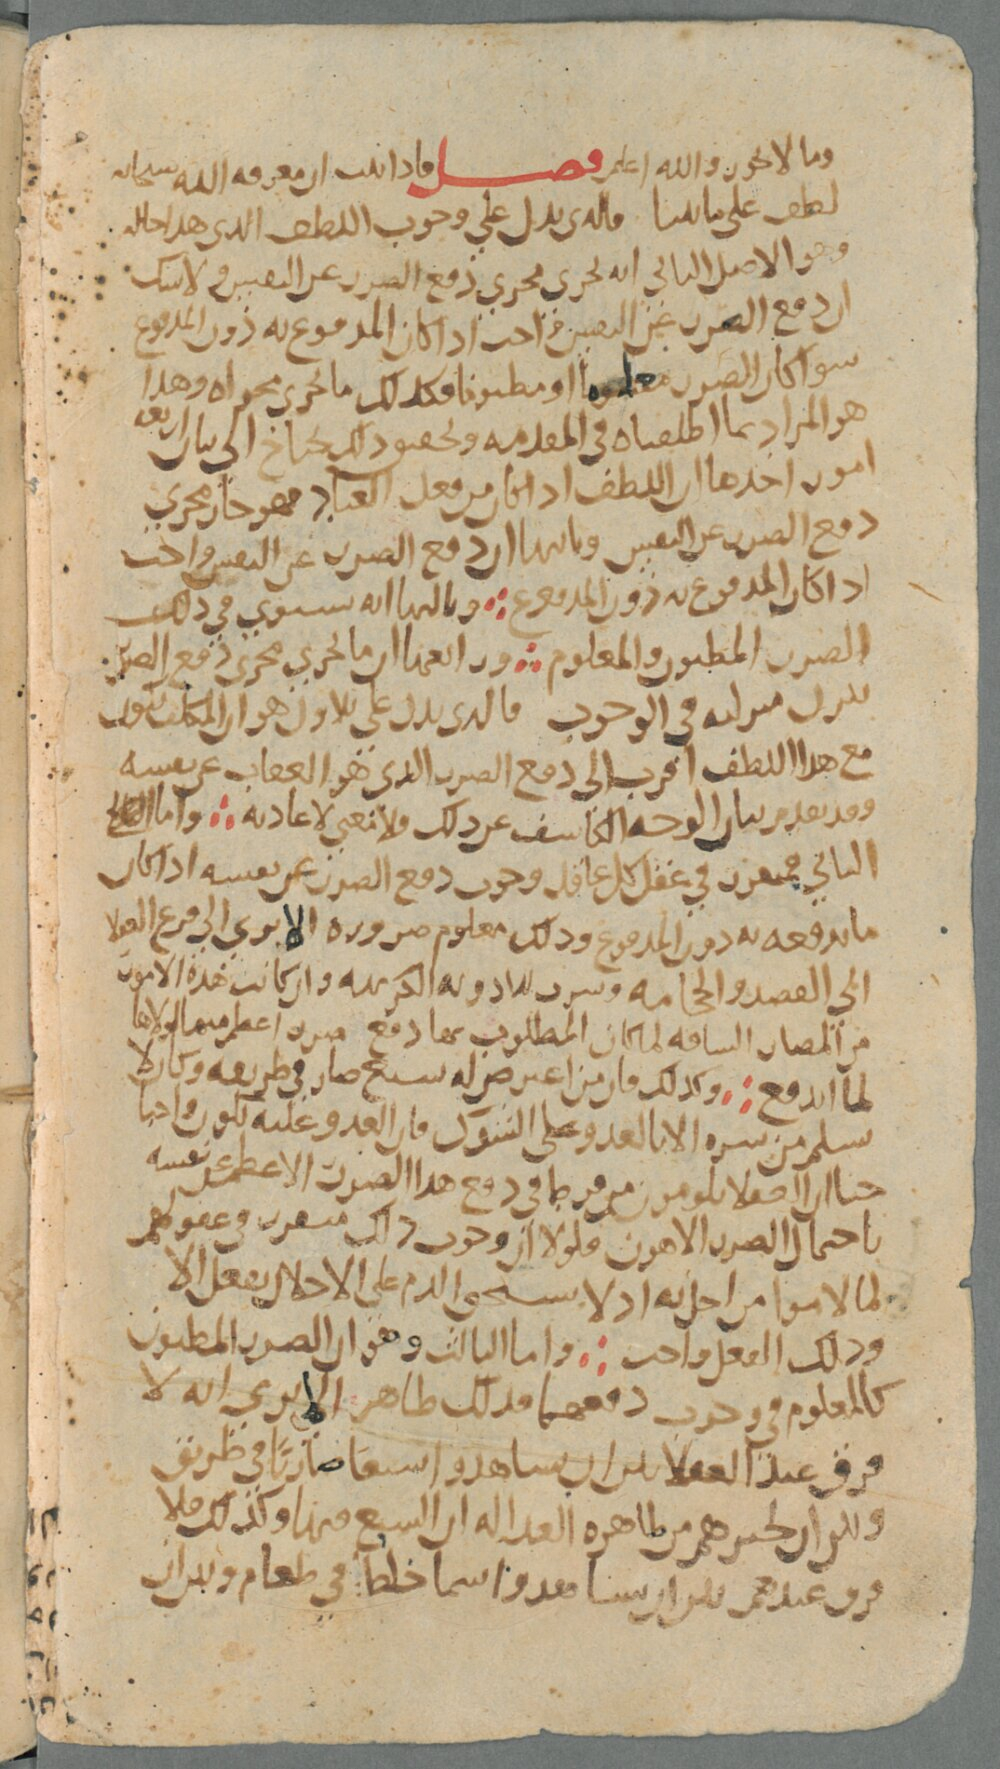 وما لا يجوز والله اعلم فصل فاذا ثبت ان معرفة الله سبحانه
لطف على ما بينا فالذي يدل على وجوب اللطف الذي هذا حاله
وهو الاصل الثاني انه يجري مجرى دفع الضرر عن النفس ولا شك
ان دفع الضرر عن النفس واجب اذا كان المدفوع به دون المدفوع
سوا كان الضرر معلوما او مظنونا فكذلك ما يجري مجراه وهذا
هو المراد بما اطلقناه في المقدمة وتحقيق ذلك يحتاج الى بيان اربعة
امور احدها ان اللطف اذا كان من فعل العباد فهو جار مجرى
دفع الضرر عن النفس وثانيها ان دفع الضرر عن النفس واجب
اذا كان المدفوع به دون المدفوع وثالثها انه يستوي في ذلك
الضرر المظنون والمعلوم ورابعها ان ما يجري مجرى دفع الضرر
ينزل منزلته في الوجوب فالذي يدل على الاول هو ان المكلف يكون
مع هذا اللطف اقرب الى دفع الضرر الذي هو العقاب عن نفسه
وقد تقدم بيان الوجه الكاشف عن ذلك ولا معنى لاعادته واما
الثاني فمتقرر في عقل كل عاقل وجوب دفع الضرر عن نفسه اذا كان
ما يدفعه به دون المدفوع وذلك معلوم ضرورة الا ترى الى فزع العقلا
الى الفصد والحجامة وشرب الادوية الكريهة وان كانت هذه الامور
من المضار الشاقة لما كان المطلوب بها دفع ضرر اعظم منها لولاها
لما اندفع وكذلك فان من اعترض له سبع ضار في طريقه وكان لا
يسلم من شره الا بالعدو على الشوك فان العدو عليه يكون واجبا
حتى ان العقلا يلومون من فرط في دفع هذا الضرر الاعظم عن نفسه
باحتمال الضرر الاهون ولولا ان وجوب ذلك متقرر في عقولهم
لما لاموا من اخل به اذ لا يستحق الذم على الاخلال بفعل الا
وذلك الفعل واجب واما الثالث وهو ان الضرر المظنون
كالمعلوم في وجوب دفعهما فذلك ظاهر الا ترى انه لا
فرق عند العقلا بين ان يشاهدوا سبعا ضاريا في طريق
وبين ان يخبرهم من ظاهره العدالة ان السبع فيها وكذلك فلا
فرق عندهم بين ان يشاهدوا سما خلط في طعام وبين ان